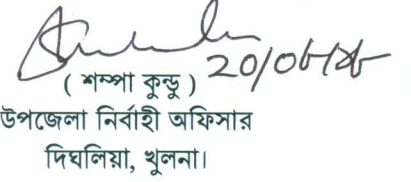 ( শম্পা কুন্ডু )
উপজেলা নির্বাহী অফিসার
দিঘলিয়া, খুলনা।